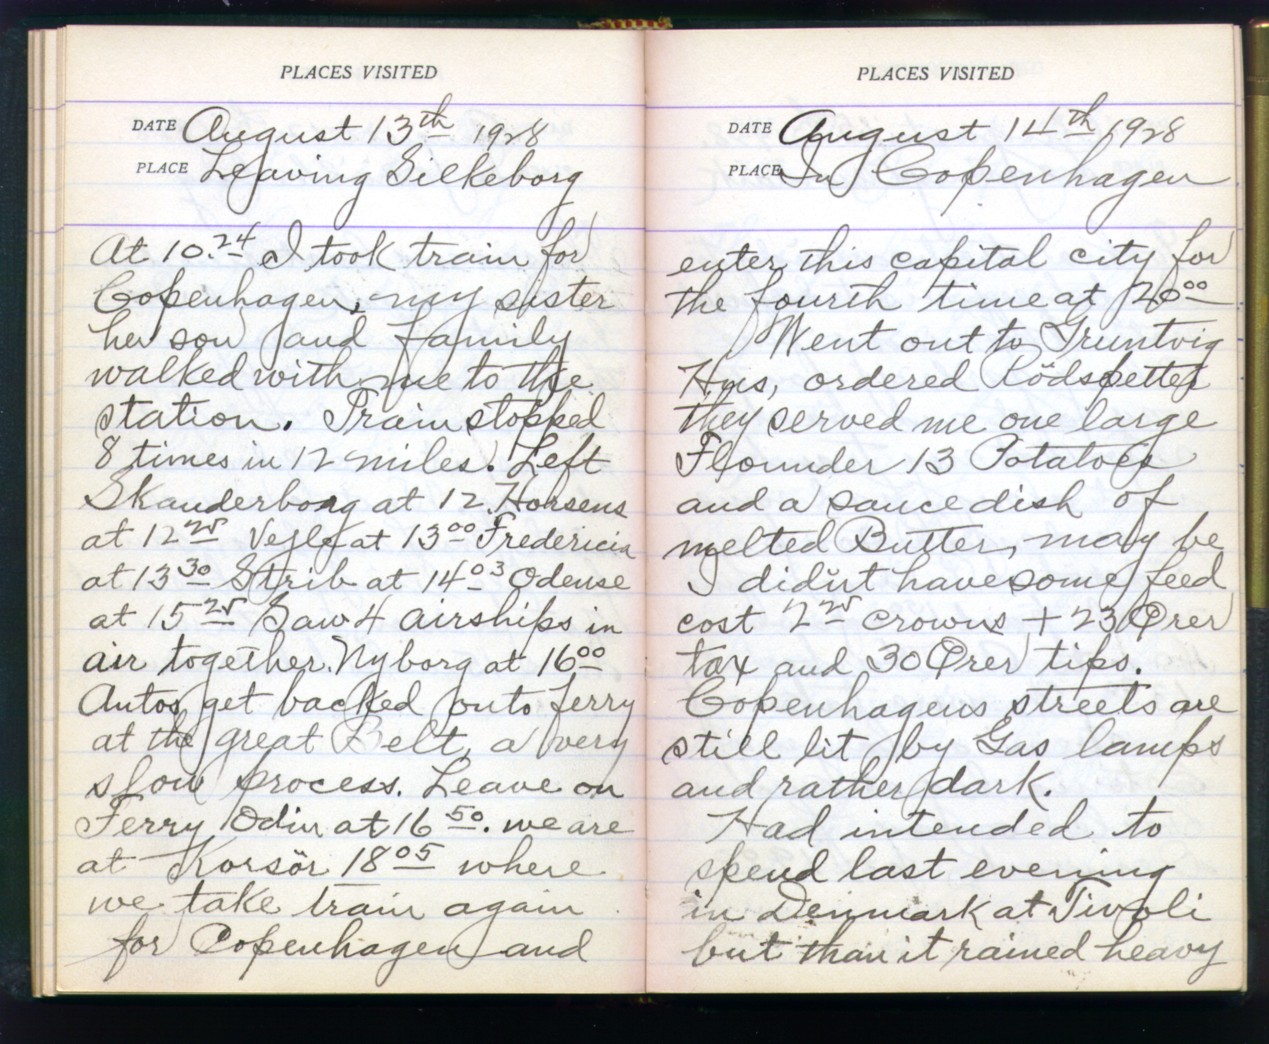 PLACES VISITED
DATE August 13th 1928
PLACE Leaving Silkeborg
At 10.24 I took train for
Copenhagen, my sister
her son and family
walked with me to the
station. Train stopped
8 times in 12 miles. Left
Skanderborg at 12. Horsens
at 12 25 Vejle at 13 00 Fredericia
at 13 30 Strib at 14 03 Odense
at 15 25 Saw 4 airships in
air together. Nyborg at 16 00
Autos get backed onto ferry
at the great Belt, a very
slow process. Leave on
Ferry Odin at 16 50. we are
at Korsör 18 05 where
we take train again
for Copenhagen and
PLACES VISITED
DATE August 14th 1928
PLACE In Copenhagen
enter this capital city for
the fourth time at 20 00
Went out to Gruntvig
Hus, ordered Rödspetter
they served me one large
Flounder 13 Potatoes
and a sauce dish of
melted Butter, may be
I didn't have some feed
cost 2 25 crowns + 23 Ører
tax and 30 Ører tips.
Copenhagens streets are
still lit by Gas lamps
and rather dark.
Had intended to
spend last evening
in Denmark at Tivoli
but than it rained heavy